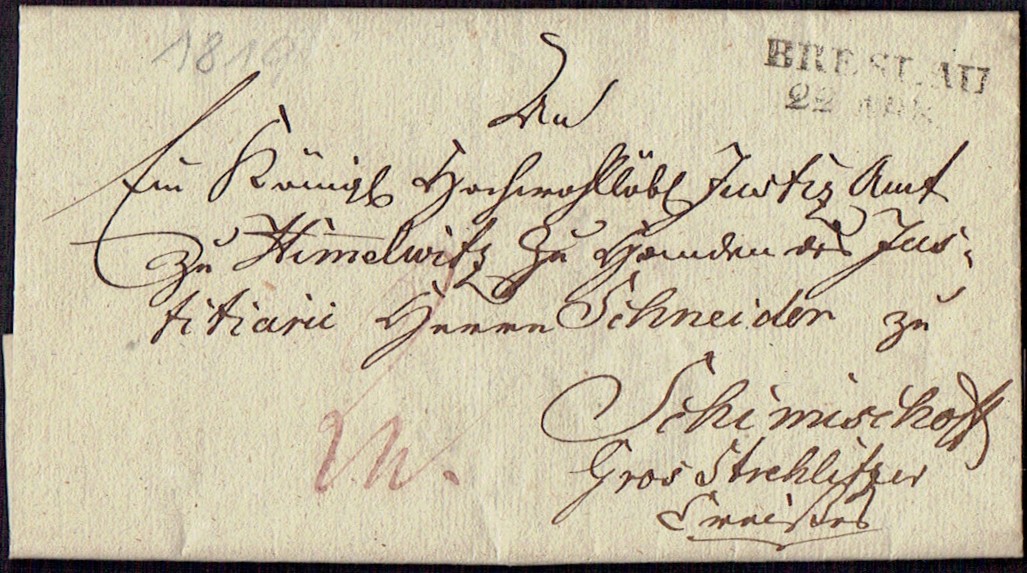 1819
BRESLAU
22 APR.
An
Ein Königl Hochwohllöbl Justiz Amt
zu Himelwitz zu Handen des Jus-
titiarii Herrn Schneider zu
Schimischoff
Gros Strehlitzer
Creises